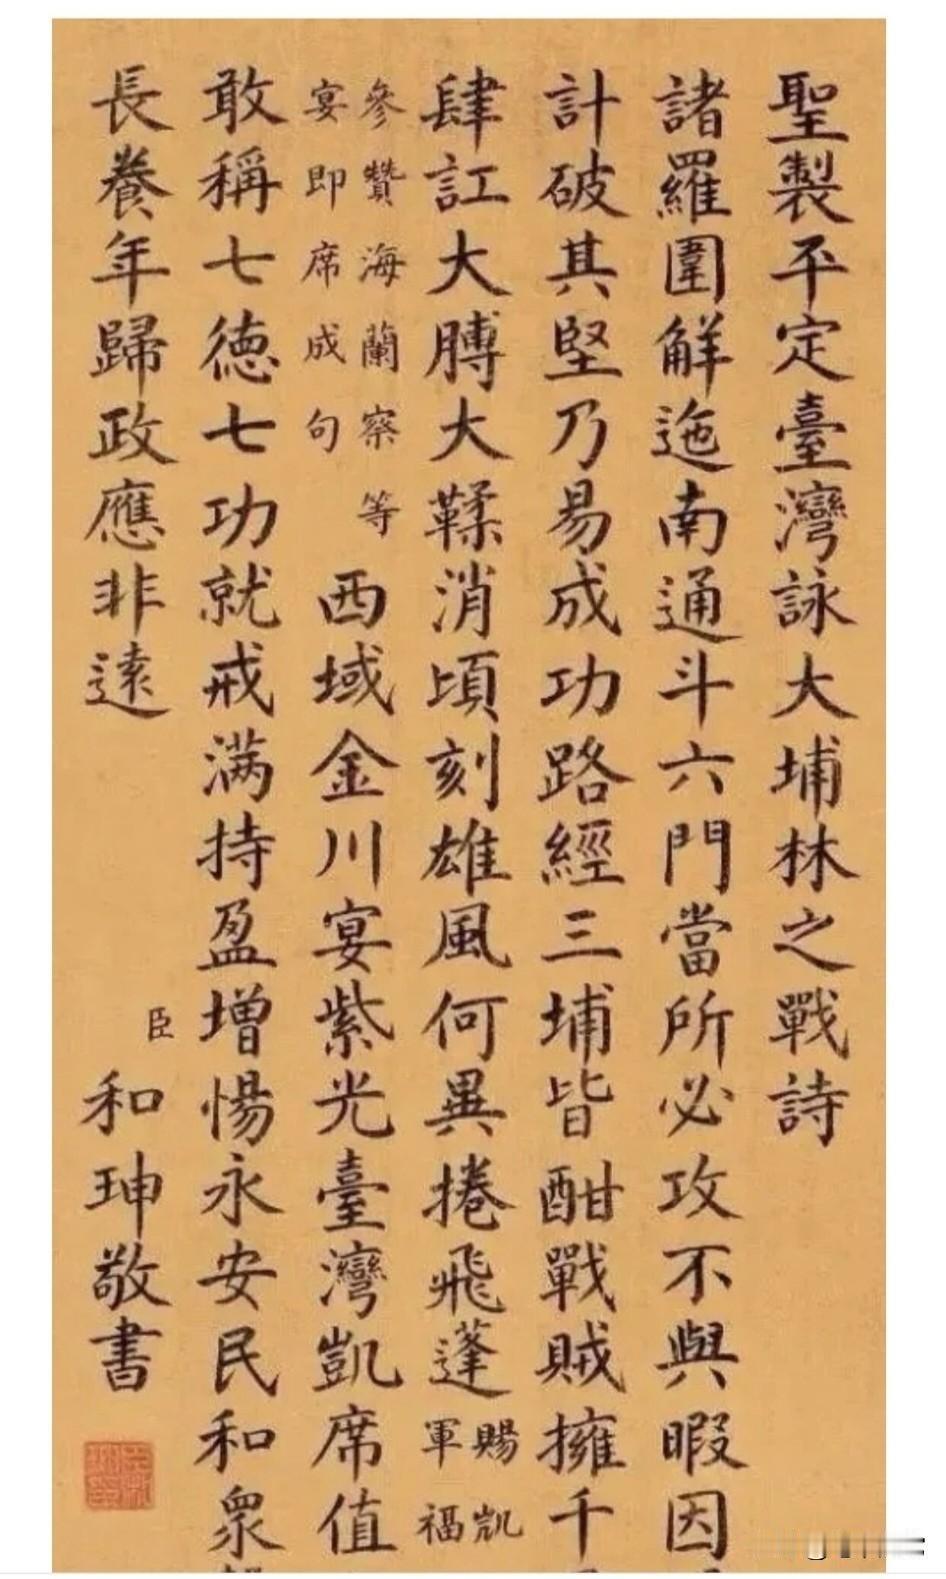 聖製平定臺灣詠大埔林之戰詩
諸羅圍解迤南通斗六門當所必攻不與暇因
計破其堅乃易成功路經三埔皆酣戰賊擁千
肆訌大膊大鞣消頃刻雄風何異捲飛蓬
賜凱
軍福
參贊海蘭察等
宴即席成句
西域金川宴紫光臺灣凱席值
敢稱七德七功就戒滿持盈增惕永安民和衆
長養年歸政應非遠
臣和珅敬書